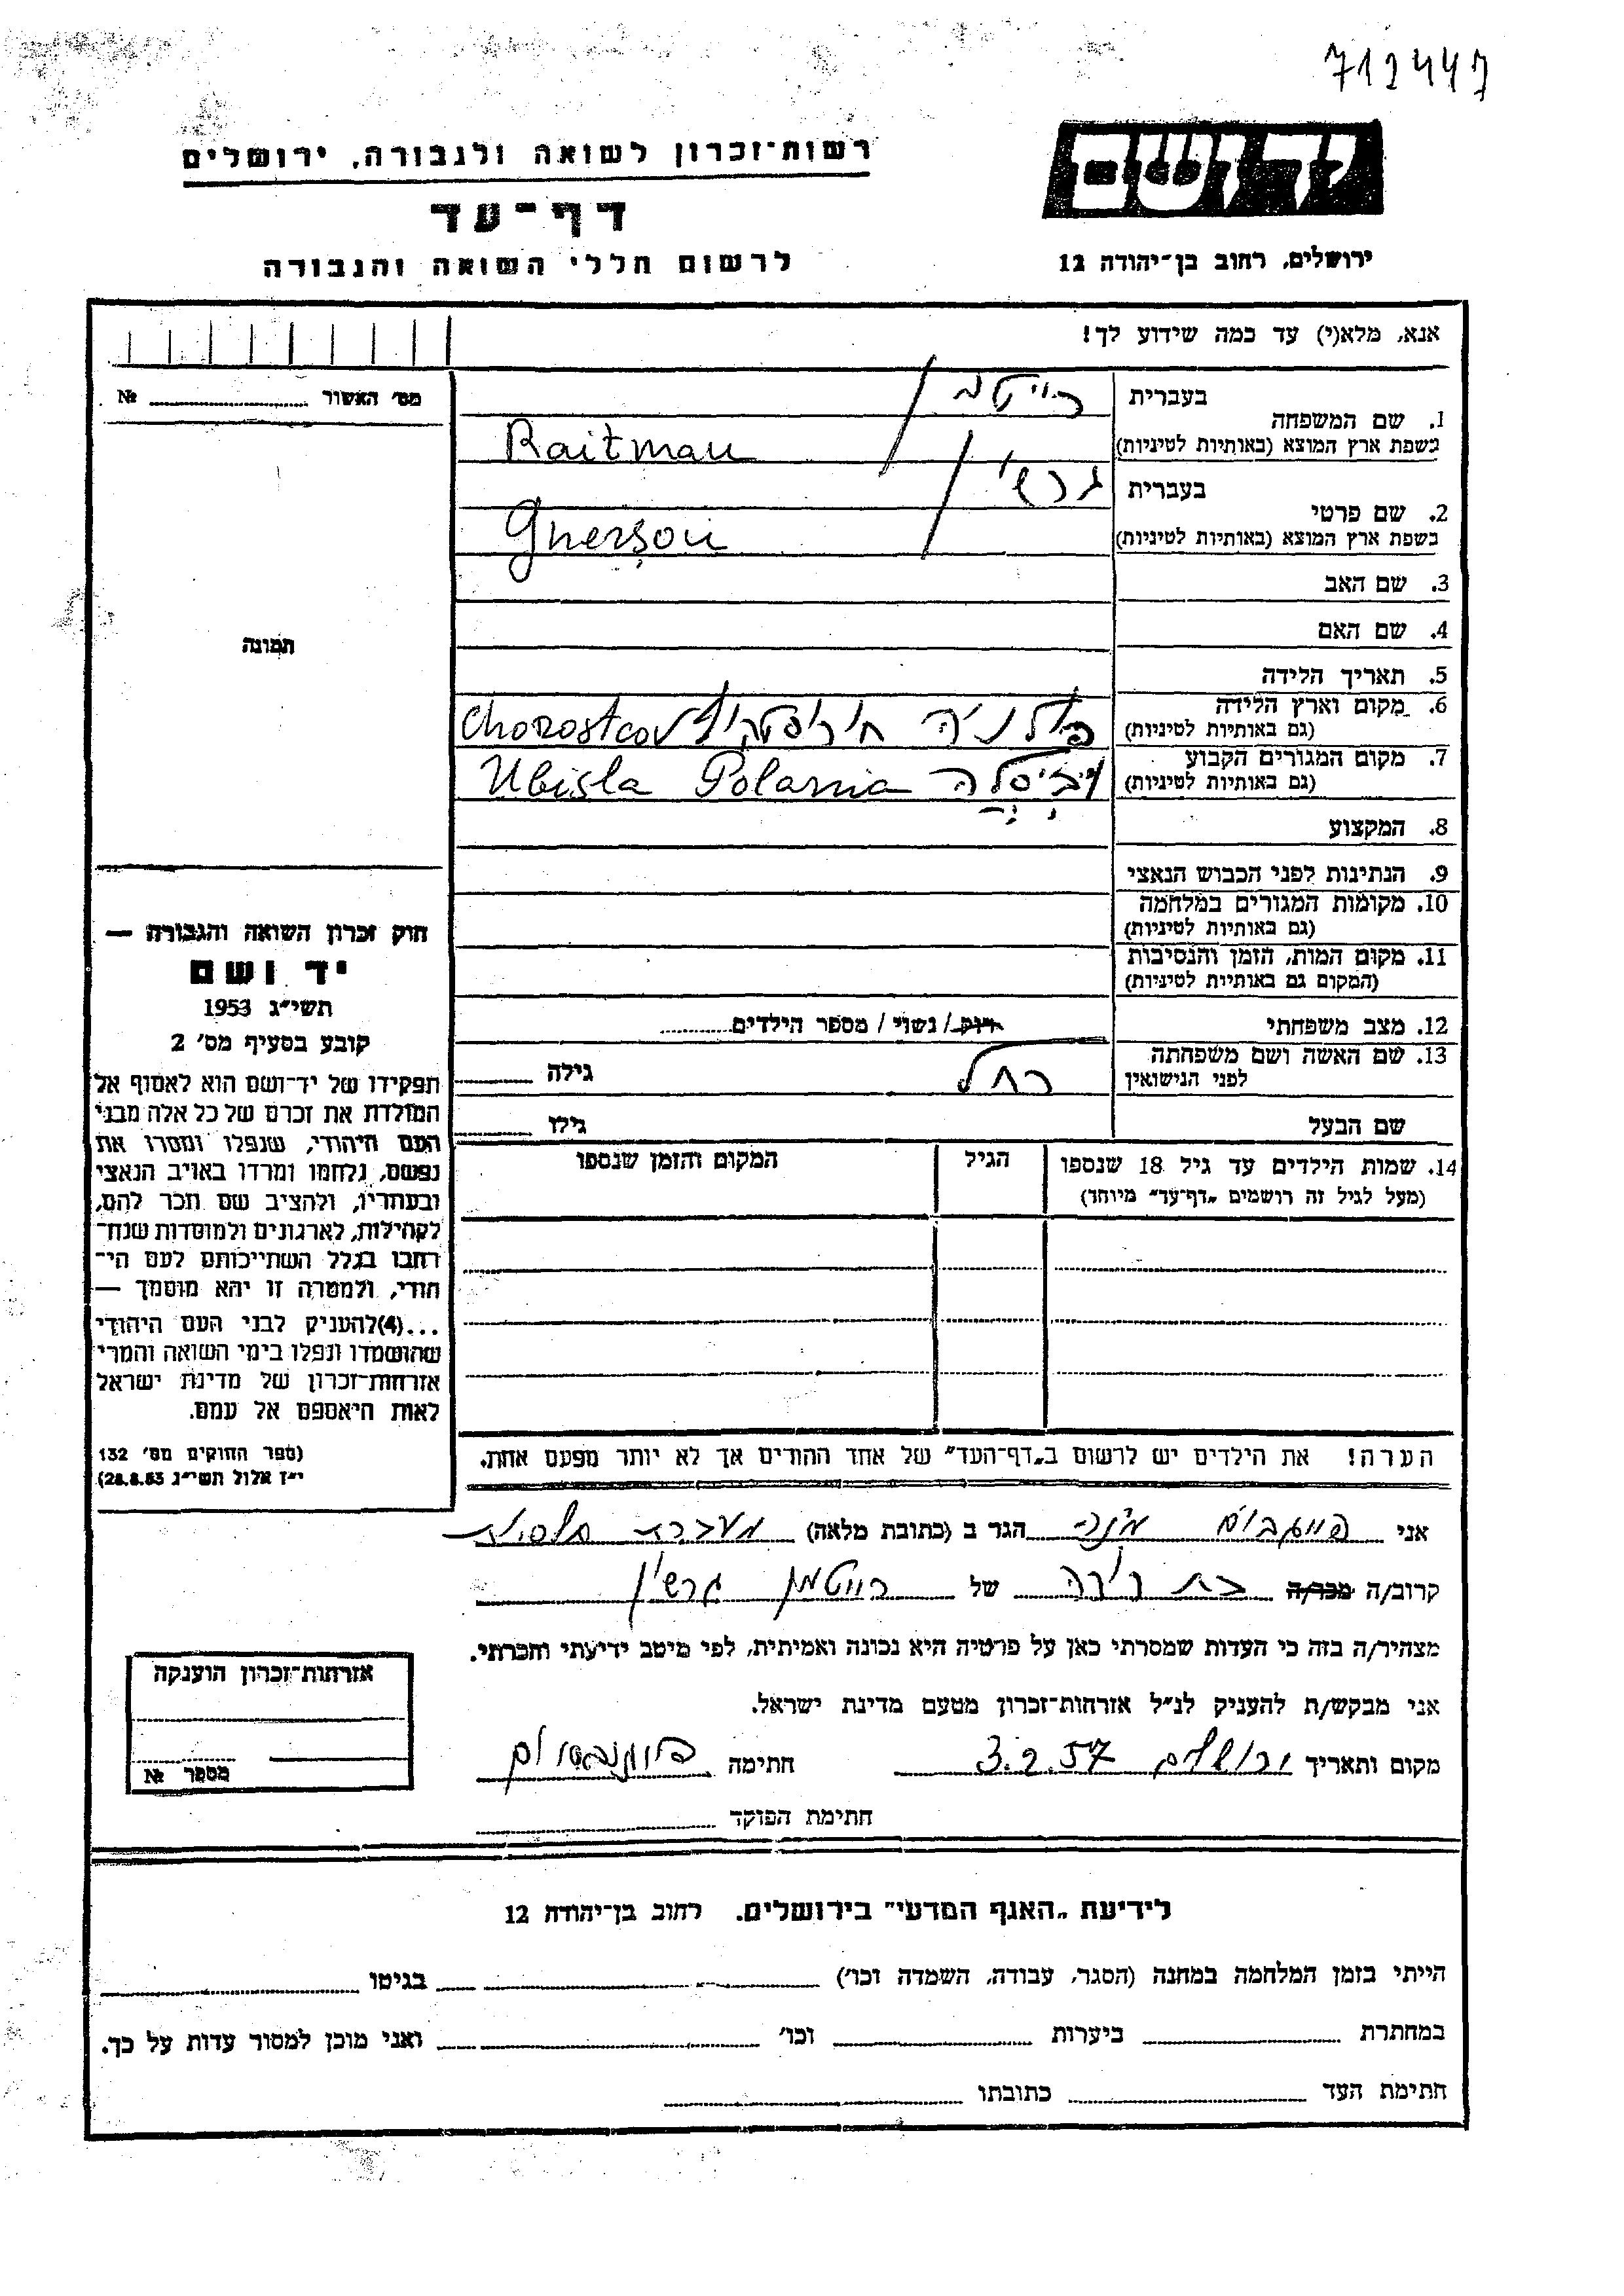 712447
רשות־זכרון לשואה ולגבורה, ירושלים
דף־עד
לרשום חללי השואה והגבורה
יד ושם
ירושלים, רחוב בן־יהודה 12
אנא, מלא(י) עד כמה שידוע לך!
מס' האשור № 
1. שם המשפחה בעברית רייטמן
בשפת ארץ המוצא (באותיות לטיניות) Raitman
2. שם פרטי בעברית גרשון
בשפת ארץ המוצא (באותיות לטיניות) Gherşon
3. שם האב
4. שם האם
תמונה
5. תאריך הלידה
6. מקום וארץ הלידה
(גם באותיות לטיניות) פולניה Chorostcov
7. מקום המגורים הקבוע
(גם באותיות לטיניות) Polania
8. המקצוע
9. הנתינות לפני הכבוש הנאצי
10. מקומות המגורים במלחמה
(גם באותיות לטיניות)
11. מקום המות, הזמן והנסיבות
(המקום גם באותיות לטיניות)
12. מצב משפחתי רווק / נשוי / מספר הילדים
13. שם האשה ושם משפחתה
לפני הנישואין רחל גילה
שם הבעל גילו
14. שמות הילדים עד גיל 18 שנספו הגיל המקום והזמן שנספו
(מעל לגיל זה רושמים „דף־עד" מיוחד)
הערה! את הילדים יש לרשום ב„דף־העד" של אחד ההורים אך לא יותר מפעם אחת.
חוק זכרון השואה והגבורה —
יד ושם
תשי"ג 1953
קובע בסעיף מס' 2
תפקידו של יד־ושם הוא לאסוף אל
המולדת את זכרם של כל אלה מבני
העם היהודי, שנפלו ומסרו את
נפשם, נלחמו ומרדו באויב הנאצי
ובעוזריו, ולהציב שם וזכר להם,
לקהילות, לארגונים ולמוסדות שנח־
רבו בגלל השתייכותם לעם הי־
הודי, ולמטרה זו יהא מוסמך —
...(4)להעניק לבני העם היהודי
שהושמדו ונפלו בימי השואה והמרי
אזרחות־זכרון של מדינת ישראל
לאות היאספם אל עמם.
(ספר החוקים מס' 132
י"ז אלול תשי"ג 28.8.53)
אני הגר ב (כתובת מלאה) מעברת
קרוב/ה מכר/ה בת דודה של רייטמן גרשון
מצהיר/ה בזה כי העדות שמסרתי כאן על פרטיה היא נכונה ואמיתית, לפי מיטב ידיעתי והכרתי.
אני מבקש/ת להעניק לנ"ל אזרחות־זכרון מטעם מדינת ישראל.
מקום ותאריך ירושלים 3.2.57 חתימה
חתימת הפוקד
אזרחות־זכרון הוענקה
מספר №
לידיעת „האגף המדעי" בירושלים. רחוב בן־יהודה 12
הייתי בזמן המלחמה במחנה (הסגר, עבודה, השמדה וכו') בגיטו
במחתרת ביערות וכו' ואני מוכן למסור עדות על כך.
חתימת העד כתובתו